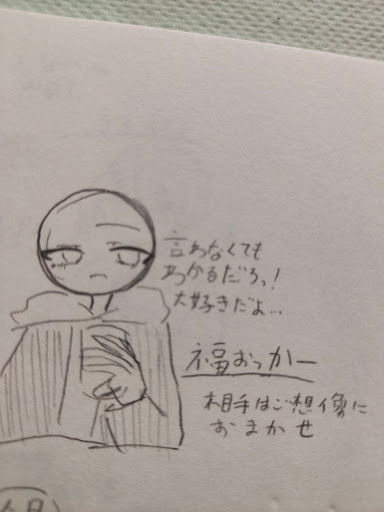 言わなくても
わかるだろっ!
大好きだよ...
福おっかー
相手はご想像に
おまかせ